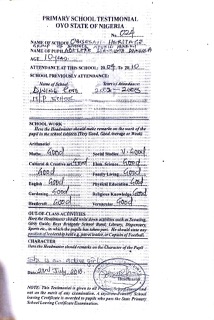 PRIMARY SCHOOL TESTIMONIAL
OYO STATE OF NIGERIA
No. 024
NAME OF SCHOOL
NAME OF PUPIL
AGE 10 years
ATTENDANCE AT THIS SCHOOL: 2009 TO 2010
SCHOOL PREVIOUSLY ATTENDANCE:
Name of School Years of Attendance
SCHOOL WORK
Here the Headmaster should make remarks on the work of the
pupil in the school subjects (Very Good, Good average or Weak)
Arithmetic
Maths Good Social Studies V. Good
Cultural & Creative Good Elem. Science Good
Good Family Living Good
English Good Physical Education Good
Gardening Good Religious Knowledge Good
Handcraft Good Vernacular Good
OUT-OF-CLASS ACTIVITIES
Here the Headmaster should write down activities such as Scouting,
Girls Guide, Boys Brigade School Band, Library, Dispensary,
Sports etc., in which the pupils has taken part. He should state any
position of leadership held e.g. patrol leader, or Captain of Football.
CHARACTER
Here the Headmaster should Remarks on the Character of the Pupil
She is an active girl
Date 22nd July, 2010
NOTE: This Testimonial is given to all Primary School
not on the merit of any examination. A Primary School
Leaving Certificate is awarded to pupils who pass the State Primary
School Leaving Certificate Examination.